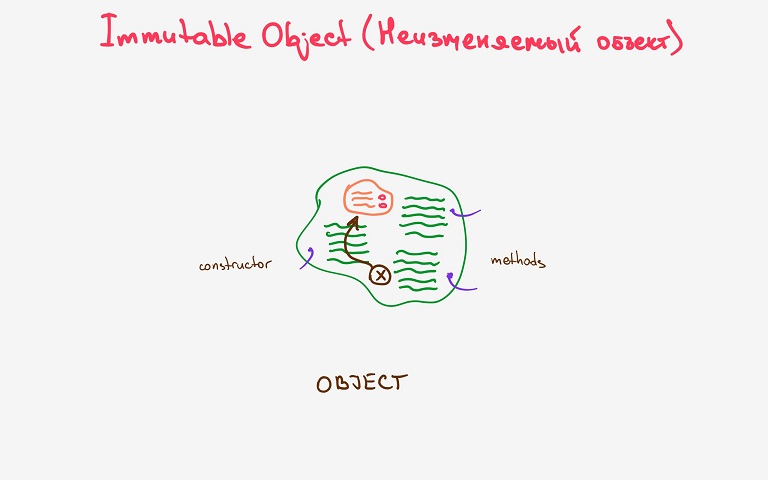 Immutable Object (Неизменяемый объект)
constructor
methods
X
OBJECT